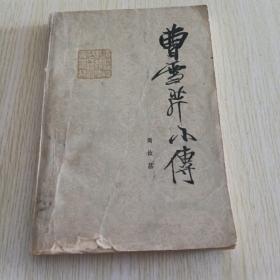 曹雪芹小傳
周汝昌